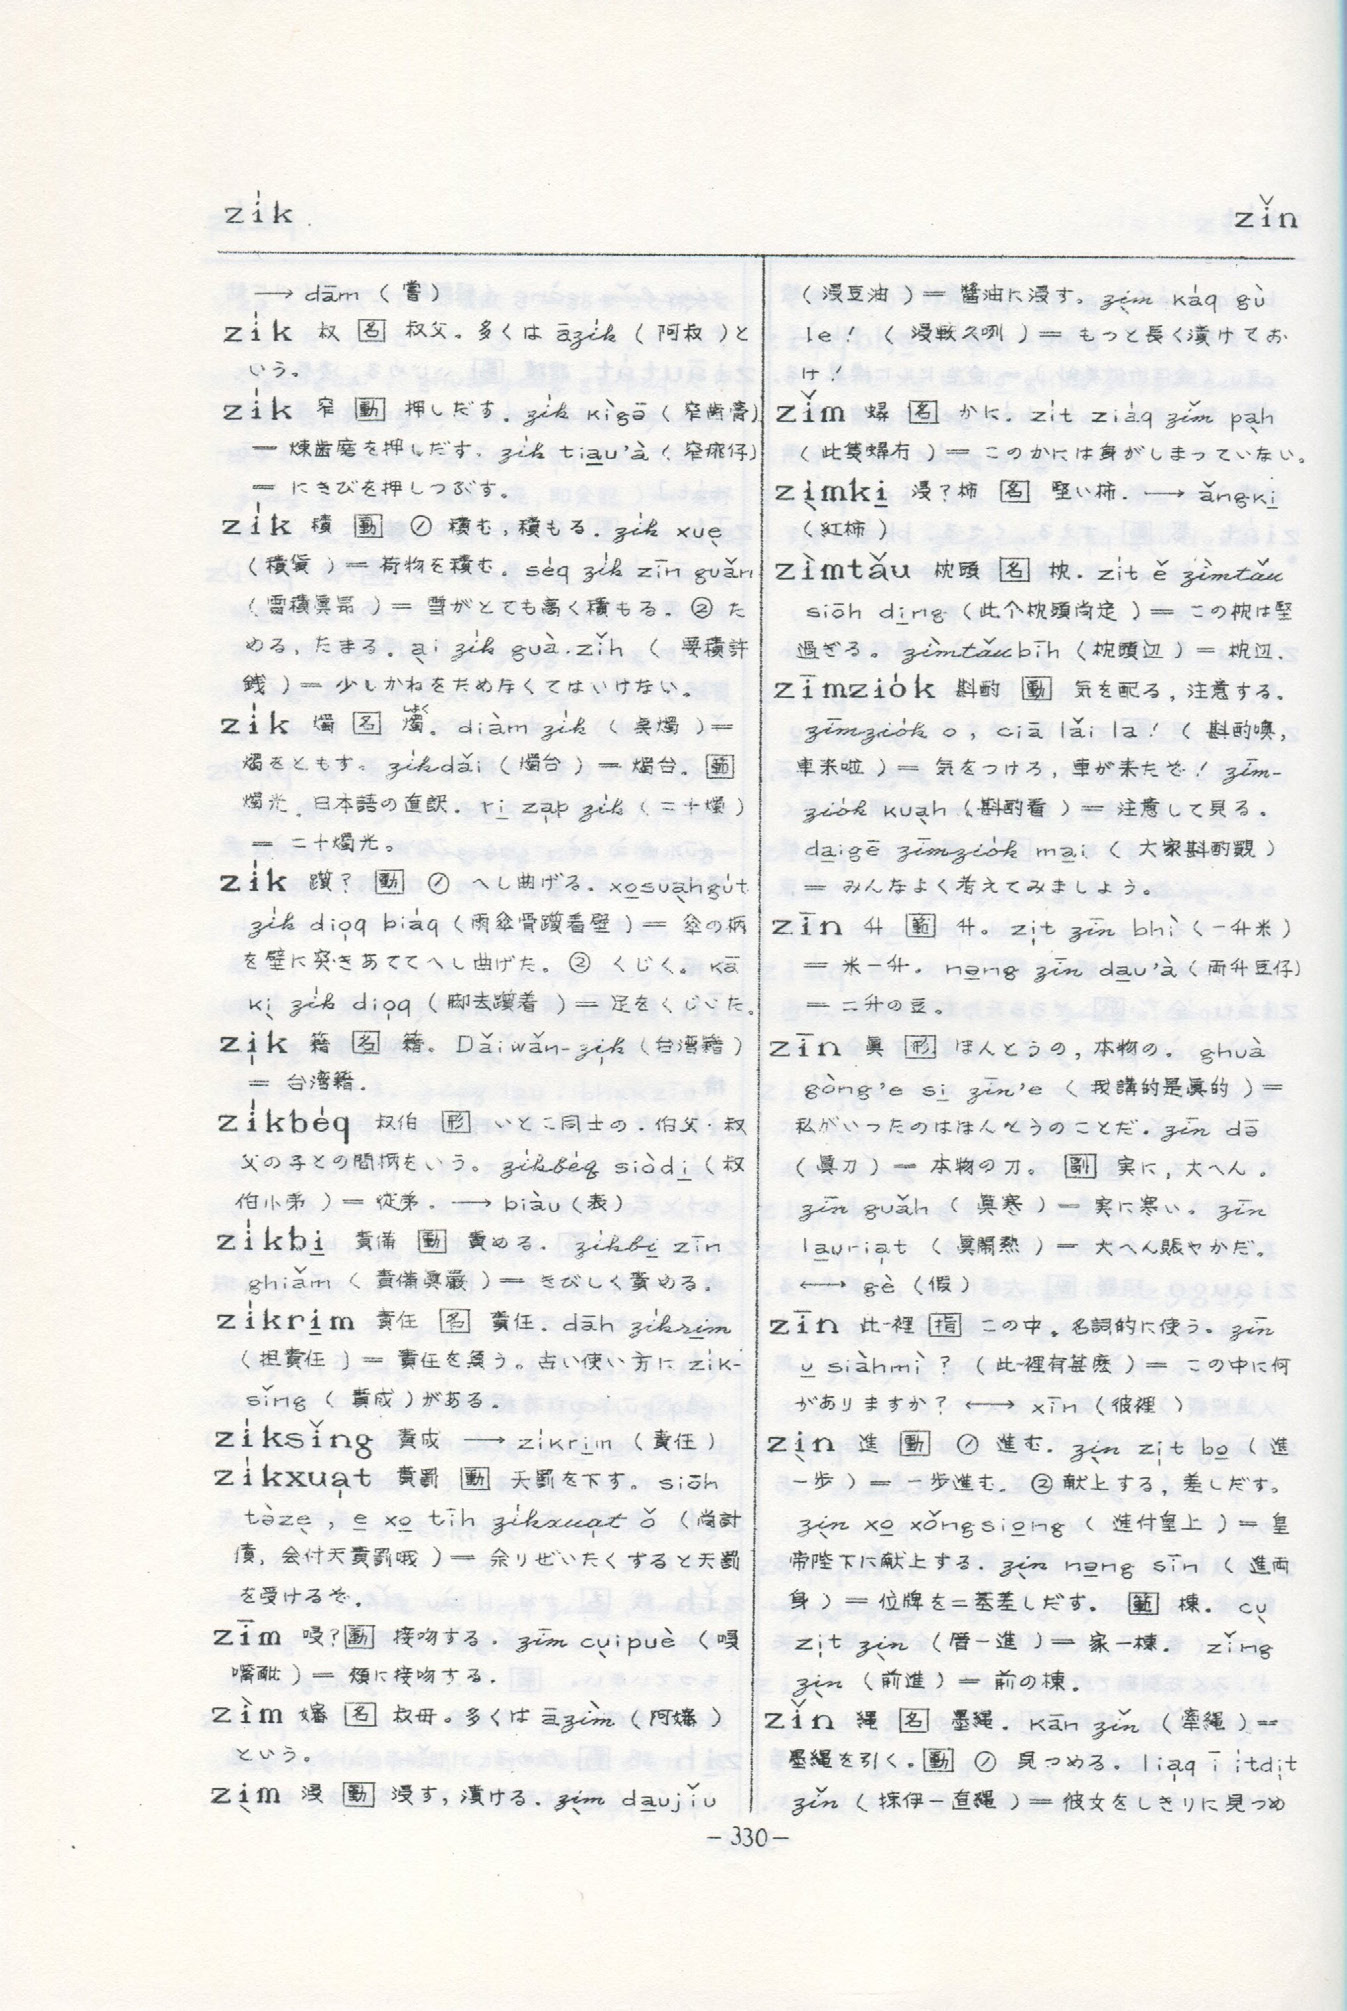 zi̍k
zǐn
→ dām（嘗）
zi̍k 叔 名 叔父。多くは āzi̍k（阿叔）と
いう。
zi̍k 窄 動 押しだす. zi̍k kìgō（窄歯膏）
＝煉歯磨を押しだす. zi̍k tia̱u'à（窄疵仔）
＝にきびを押しつぶす。
zi̍k 積 動 ① 積む, 積もる. zi̍k xuẹ
（積貨）＝荷物を積む. se̍q zi̍k zīn guǎn
（雪積眞昻）＝雪がとても高く積もる. ② た
める, たまる. ại zi̍k guà.zǐh（要積許
銭）＝少しかねをためなくてはいけない。
zi̍k 燭 名 燭。diàm zi̍k（点燭）＝
燭をともす. zi̍kdǎi（燭台）＝燭台. 範
燭光. 日本語の直訳. ri̱ zạp zi̍k（二十燭）
＝二十燭光。
zi̍k 蹴？ 動 ① へし曲げる. xo̱suạhgu̍t
zi̍k diọq bia̍q（雨傘骨蹴着壁）＝傘の柄
を壁に突きあててへし曲げた。② くじく。kā
kị zi̍k diọq（脚去蹴着）＝足をくじいた。
zịk 籍 名 籍. Dǎiwǎn-zịk（台湾籍）
＝台湾籍.
zi̍kbe̍q 叔伯 形 いとこ同士の. 伯父・叔
父の子との間柄をいう。zi̍kbe̍q siòdi̱（叔
伯小弟）＝従弟. → biàu（表）
zi̍kbi̱ 責備 動 責める. zi̍kbi̱ zīn
ghiǎm（責備眞嚴）＝きびしく責める。
zi̍kri̱m 責任 名 責任. dāh zi̍kri̱m
（担責任）＝責任を負う。古い使い方に zi̍k-
sǐng（責成）がある。
zi̍ksǐng 責成 → zi̍kri̱m（責任）
zi̍kxuạt 責罰 動 天罰を下す. siōh
tə̀zẹ, e̱ xo̱ tīh zi̍kxuạt ǒ（尚討
債, 会付天責罰哦）＝余りぜいたくすると天罰
を受けるぞ.
zīm 唚？ 動 接吻する. zīm cụipuè（唚
嘴䩉）＝頬に接吻する.
zìm 嬸 名 叔母. 多くは āzìm（阿嬸）
という。
zịm 浸 動 浸す, 漬ける. zịm da̱ujǐu
（浸豆油）＝醬油に浸す. zịm ka̍q gù
le!（浸較久咧）＝もっと長く漬けてお
け!
zǐm 蟳 名 かに. zi̍t zia̍q zǐm pạh
（此隻蟳冇）＝このかには身がしまっていない.
zịmki̱ 浸？柿 名 堅い柿. → ǎngki̱
（紅柿）
zìmtǎu 枕頭 名 枕. zi̍t ě zìmtǎu
siōh di̱ng（此个枕頭尚定）＝この枕は堅
過ぎる。zìmtǎubīh（枕頭辺）＝枕辺.
zīmzio̍k 斟酌 動 気を配る, 注意する.
zīmzio̍k o, ciā lǎi la!（斟酌噢,
車来啦）＝気をつけろ, 車が来たぞ! zīm-
zio̍k kuạh（斟酌看）＝注意して見る.
da̱igē zīmzio̍k ma̱i（大家斟酌覲）
＝みんなよく考えてみましょう。
zīn 升 範 升. zịt zīn bhì（一升米）
＝米一升. no̱ng zīn da̱u'à（両升豆仔）
＝二升の豆。
zīn 眞 形 ほんとうの, 本物の. ghuà
gòng'e si̱ zīn'e（我講的是眞的）＝
私がいったのはほんとうのことだ. zīn dō
（眞刀）＝本物の刀. 副 実に, 大へん.
zīn guǎh（眞寒）＝実に寒い. zīn
la̱uriạt（眞鬧熱）＝大へん賑やかだ。
←→ gè（假）
zīn 此-裡 指 この中. 名詞的に使う. zīn
u̱ siàhmì?（此-裡有甚麽）＝この中に何
がありますか? ←→ xīn（彼裡）
zịn 進 動 ① 進む. zịn zịt bo̱（進
一歩）＝一歩進む. ② 献上する, 差しだす。
zịn xo̱ xǒngsio̱ng（進付皇上）＝皇
帝陛下に献上する. zịn no̱ng sīn（進両
身）＝位牌を二基差しだす. 範 棟. cụ
zịt zịn（厝一進）＝家一棟. zǐng
zịn（前進）＝前の棟.
zǐn 繩 名 墨繩. kān zǐn（牽繩）＝
墨繩を引く. 動 ① 見つめる. liạq ī itdịt
zǐn（掠伊一直繩）＝彼女をしきりに見つめ
-330-